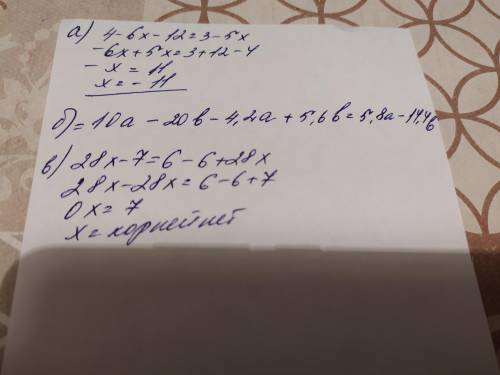 а) 4-6x-12=3-5x
-6x+5x=3+12-4
-x=11
x=-11
б)=10a-20b-4,2a+5,6b=5,8a-14,4b
в) 28x-7=6-6+28x
28x-28x=6-6+7
0x=7
x=корней нет